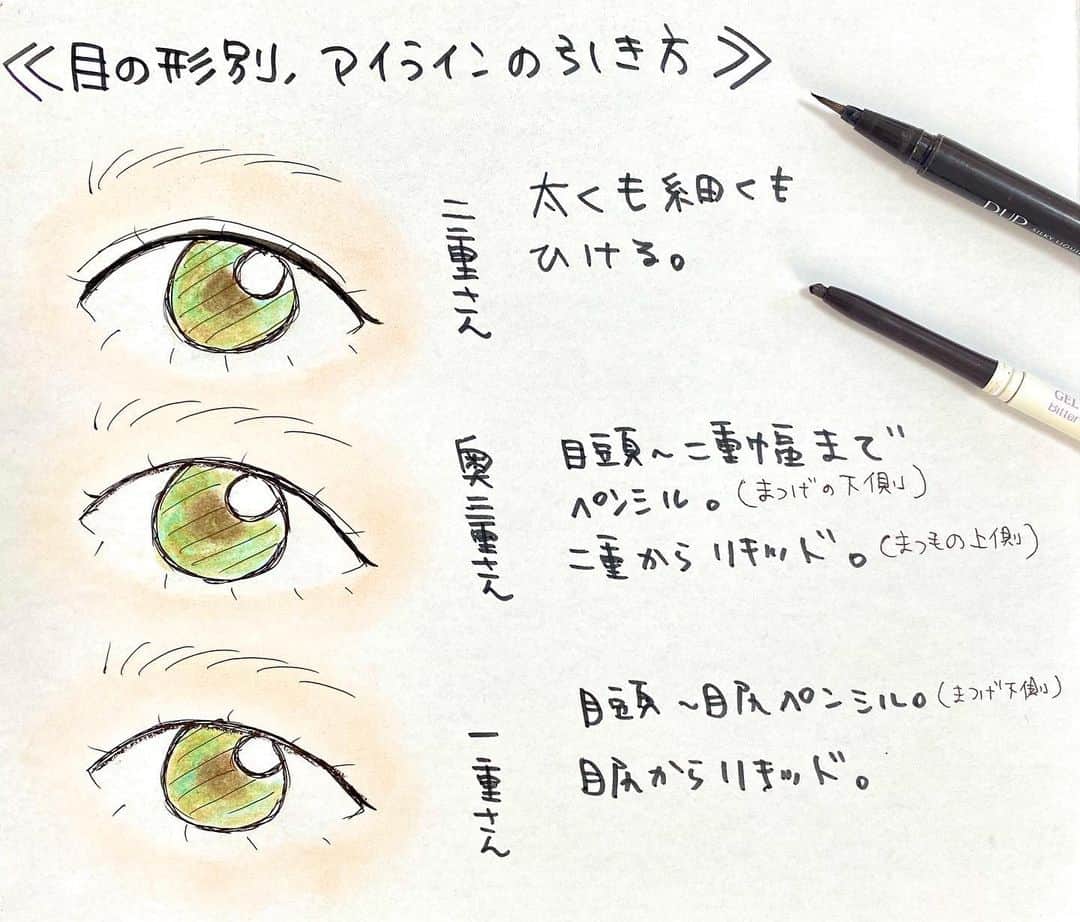 ≪目の形別、アイラインの引き方≫
二重さん
太くも細くも
ひける。
奥二重さん
目頭〜二重幅まで
ペンシル。(まつげの下側)
二重からリキッド。(まつもの上側)
一重さん
目頭〜目尻ペンシル。(まつげ下側)
目尻からリキッド。
DUP
GEL
Bitter